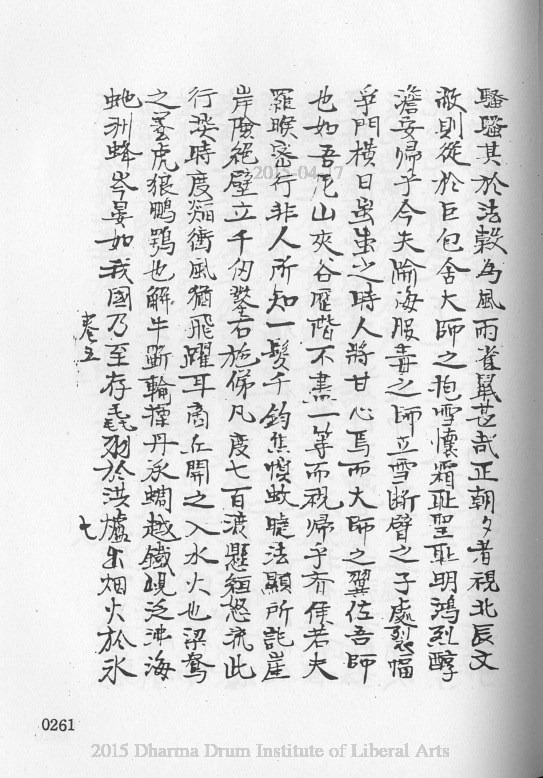 騷騷其於法穀為風雨雀鼠甚哉正朝夕者視北辰文
敝則從於巨包舍大師之抱雪懷霜耻聖耻明鴻烈醇
澹安歸乎今夫淪海服毒之師立雪斷臂之子處裂幅
爭門橫日蚩蚩之時人將甘心焉而大師之翼佐吾師
也如吾尼山夾谷歷階不盡一等而視歸乎齊侯若夫
羅睺密行非人所知一髮千鈞焦螟蚊睫法顯所記崖
岸險絕壁立千仞鑿石施梯凡度七百渡懸絙怒流此
行災時度猶衝風猶飛躍耳商丘開之入水火也梁鴦
之虎狼鵰鶚也解牛斲輪操丹承蜩越鐵峴泛沸海
虵洲蜂岑晏如我國乃至存毳羽於洪爐出烟火於氷
卷五
七
0261
2015-04-17
2015 Dharma Drum Institute of Liberal Arts